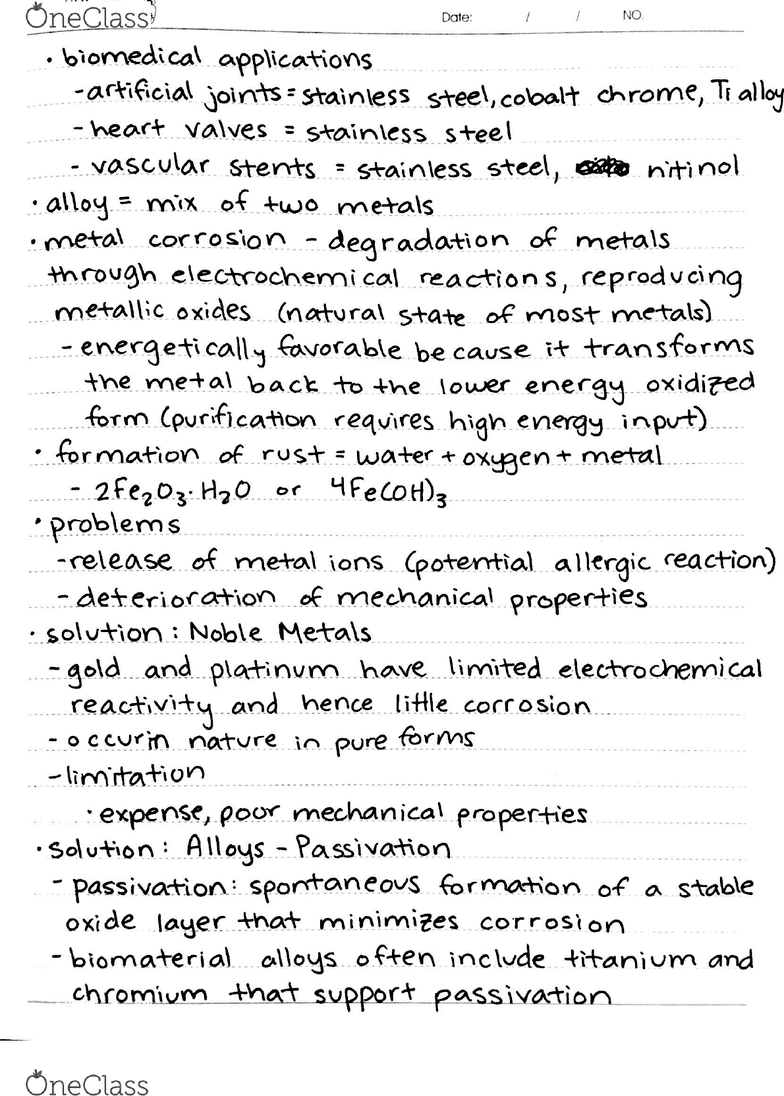 OneClass
Date: / / NO.
• biomedical applications
-artificial joints = stainless steel, cobalt chrome, Ti alloy
- heart valves = stainless steel
- vascular stents = stainless steel, nitinol
• alloy = mix of two metals
• metal corrosion - degradation of metals
through electrochemical reactions, reproducing
metallic oxides (natural state of most metals)
- energetically favorable because it transforms
the metal back to the lower energy oxidized
form (purification requires high energy input)
• formation of rust = water + oxygen + metal
- 2Fe₂O₃·H₂O or 4Fe(OH)₃
• problems
-release of metal ions (potential allergic reaction)
- deterioration of mechanical properties
• solution: Noble Metals
- gold and platinum have limited electrochemical
reactivity and hence little corrosion
- occur in nature in pure forms
-limitation
• expense, poor mechanical properties
• solution: Alloys - Passivation
- passivation: spontaneous formation of a stable
oxide layer that minimizes corrosion
- biomaterial alloys often include titanium and
chromium that support passivation
OneClass